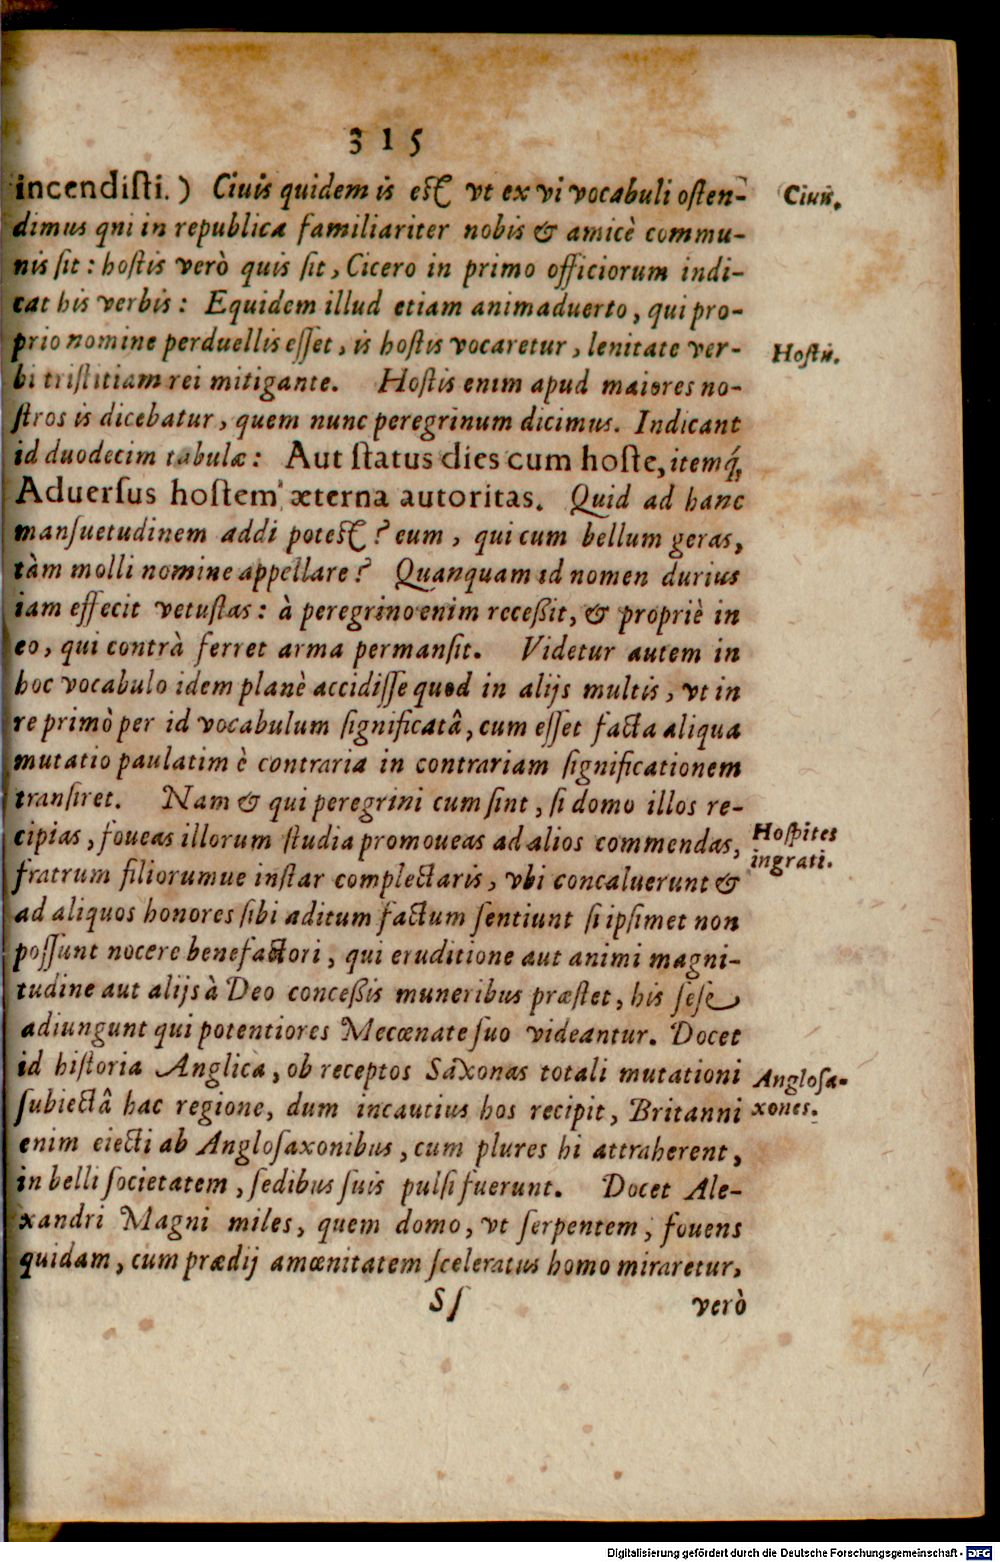 315
incendiſti.) Ciuis quidem is eſt vt ex vi vocabuli oſten-
Ciuis.
dimus qni in republica familiariter nobis & amicè commu-
nis ſit: hoſtis verò quis ſit, Cicero in primo officiorum indi-
cat his verbis: Equidem illud etiam animaduerto, qui pro-
prio nomine perduellis eſſet, is hoſtis vocaretur, lenitate ver-
Hoſtis.
bi triſtitiam rei mitigante. Hoſtis enim apud maiores no-
ſtros is dicebatur, quem nunc peregrinum dicimus. Indicant
id duodecim tabulæ: Aut ſtatus dies cum hoſte, itemq́;
Aduerſus hoſtem æterna autoritas. Quid ad hanc
manſuetudinem addi poteſt? eum, qui cum bellum geras,
tàm molli nomine appellare? Quanquam id nomen durius
iam effecit vetuſtas: à peregrino enim receßit, & propriè in
eo, qui contrà ferret arma permanſit. Videtur autem in
hoc vocabulo idem planè accidiſſe quod in alijs multis, vt in
re primò per id vocabulum ſignificatâ, cum eſſet facta aliqua
mutatio paulatim è contraria in contrariam ſignificationem
tranſiret. Nam & qui peregrini cum ſint, ſi domo illos re-
cipias, foueas illorum ſtudia promoueas ad alios commendas,
Hoſpites
ingrati.
fratrum filiorumue inſtar complectaris, vbi concaluerunt &
ad aliquos honores ſibi aditum factum ſentiunt ſi ipſimet non
poſſunt nocere benefactori, qui eruditione aut animi magni-
tudine aut alijs à Deo conceßis muneribus præſtet, his ſeſe
adiungunt qui potentiores Mecœnate ſuo videantur. Docet
id hiſtoria Anglica, ob receptos Saxonas totali mutationi
Angloſa-
xones.
ſubiectâ hac regione, dum incautius hos recipit, Britanni
enim eiecti ab Angloſaxonibus, cum plures hi attraherent,
in belli ſocietatem, ſedibus ſuis pulſi fuerunt. Docet Ale-
xandri Magni miles, quem domo, vt ſerpentem, fouens
quidam, cum prædij amœnitatem ſceleratus homo miraretur,
Sſ
verò
Digitalisierung gefördert durch die Deutsche Forschungsgemeinschaft - DFG